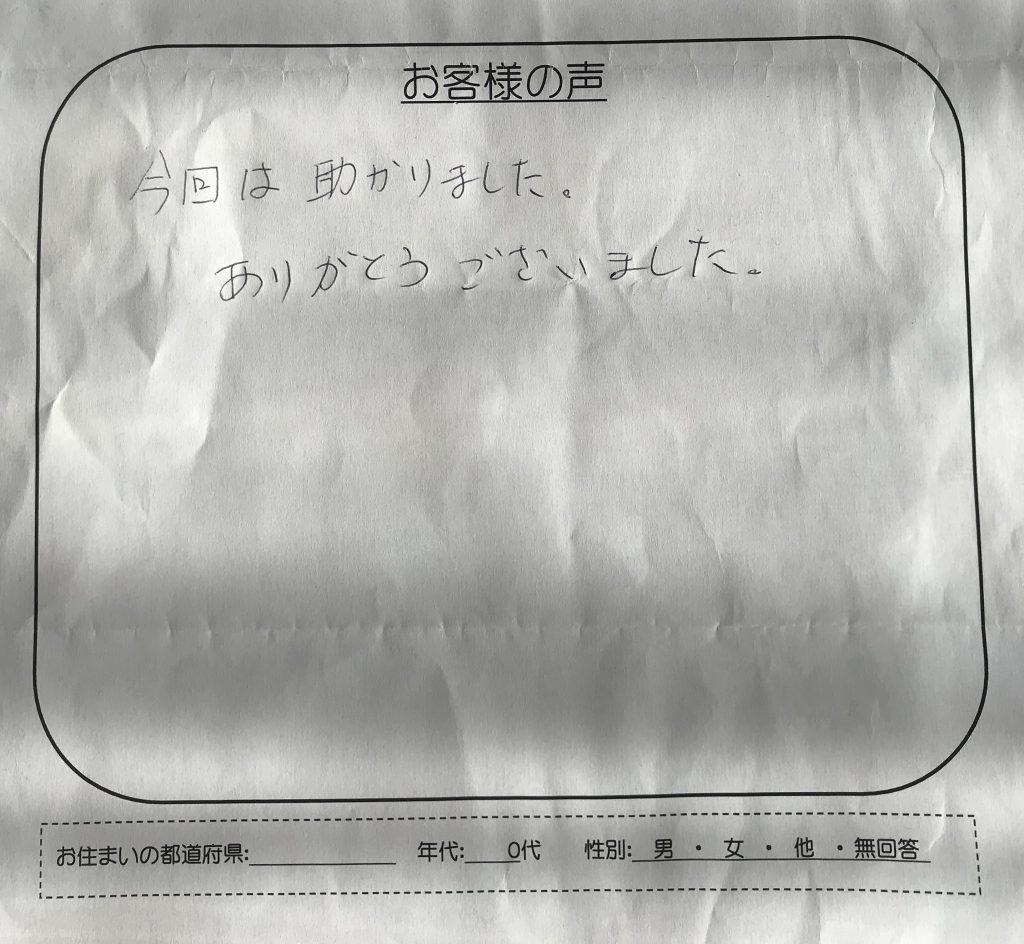 お客様の声
今回は助かりました。
ありがとうございました。
お住まいの都道府県:＿＿＿＿＿＿ 年代:＿＿0代 性別: 男 ・ 女 ・ 他 ・無回答